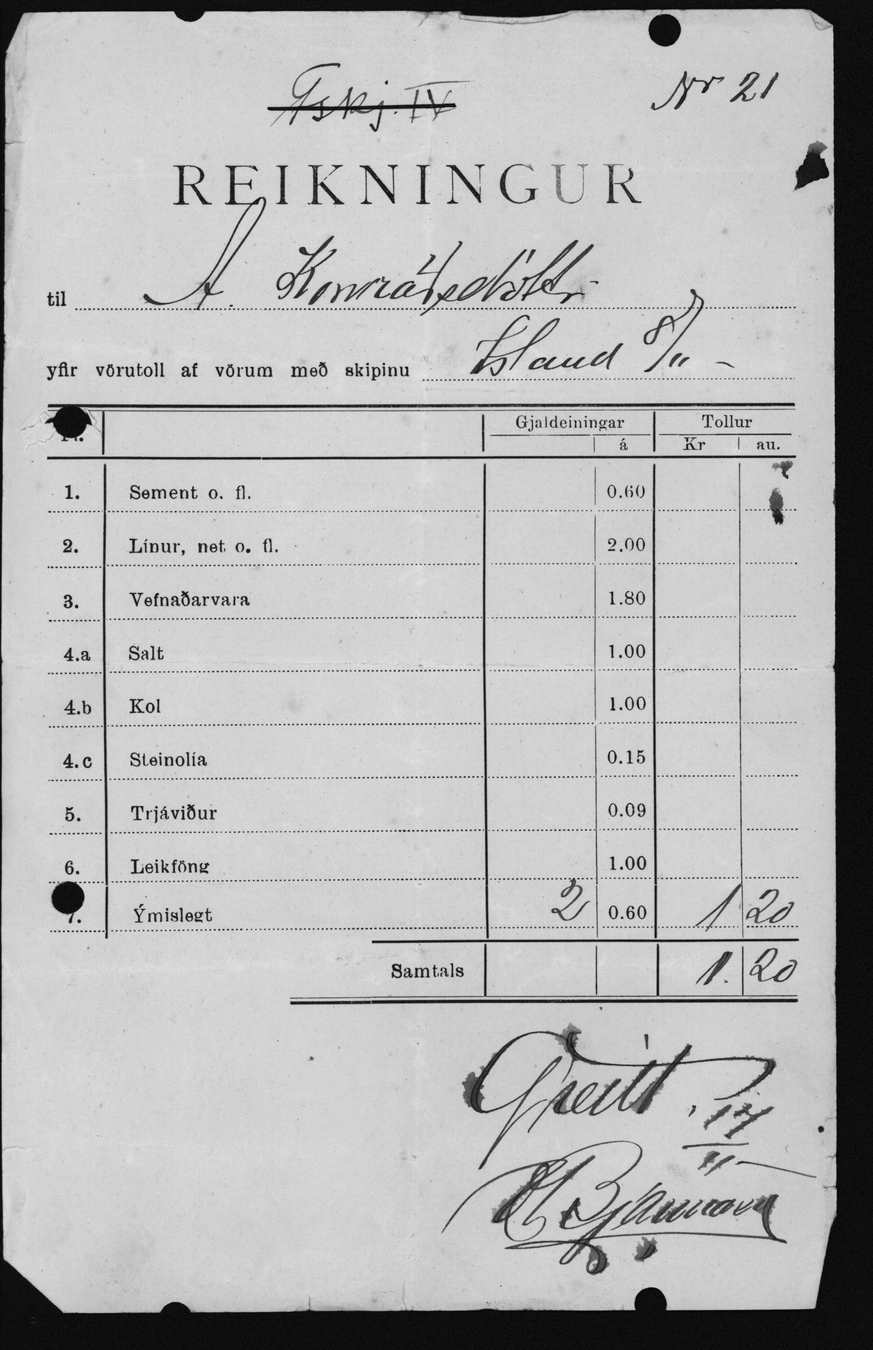 Fskj. IV
Nr 21
REIKNINGUR
til A. Konráðsdóttir
yfir vörutoll af vörum með skipinu Island 8/11 –
Gjaldeiningar Tollur
á Kr au.
1. Sement o. fl. 0.60
2. Línur, net o. fl. 2.00
3. Vefnaðarvara 1.80
4.a Salt 1.00
4.b Kol 1.00
4.c Steinolía 0.15
5. Trjáviður 0.09
6. Leikföng 1.00
7. Ýmislegt 2 0.60 1 20
Samtals 1. 20
Greitt. 17/11 –